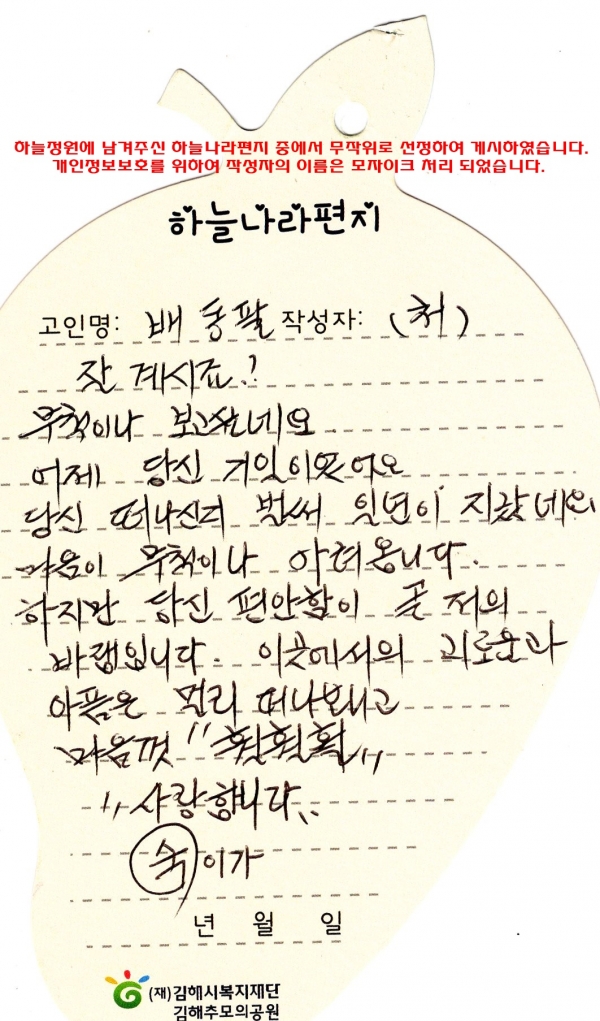 하늘정원에 남겨주신 하늘나라편지 중에서 무작위로 선정하여 게시하였습니다.
개인정보보호를 위하여 작성자의 이름은 모자이크 처리 되었습니다.
하늘나라편지
고인명: 배동팔 작성자: (처)
잘 계시죠.?
무척이나 보고싶네요
어제 당신 기일이였어요
당신 떠나신지 벌써 일년이 지났네요
마음이 무척이나 아려옵니다.
하지만 당신 편안함이 곧 저의
바램입니다. 이곳에서의 괴로운과
아픔은 멀리 떠나보내고
마음껏 "훨훨훨"
"사랑합니다"
숙이가
년 월 일
(재)김해시복지재단
김해추모의공원